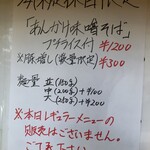 「あんかけ味噌そば」
プチライス付 ¥1200
※豚増し(数量限定) ¥300
麺量 並(150g)
中(200g)+¥100
大
※本日レギュラーメニューの
販売はございません。
ご了承下さい